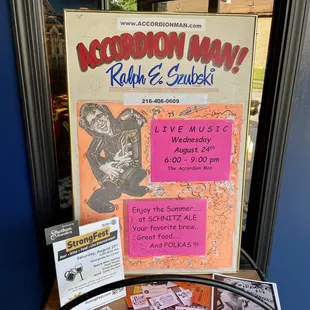 www.ACCORDIONMAN.com
ACCORDION MAN!
Ralph E. Szubski
216-406-0609
LIVE MUSIC
Wednesday
August 24th
6:00 - 9:00 pm
The Accordion Man
Enjoy the Summer....
at SCHNITZ ALE
Your favorite bev...
Great food....
And POLKAS !!!
StrongFest
Saturday, August 27th